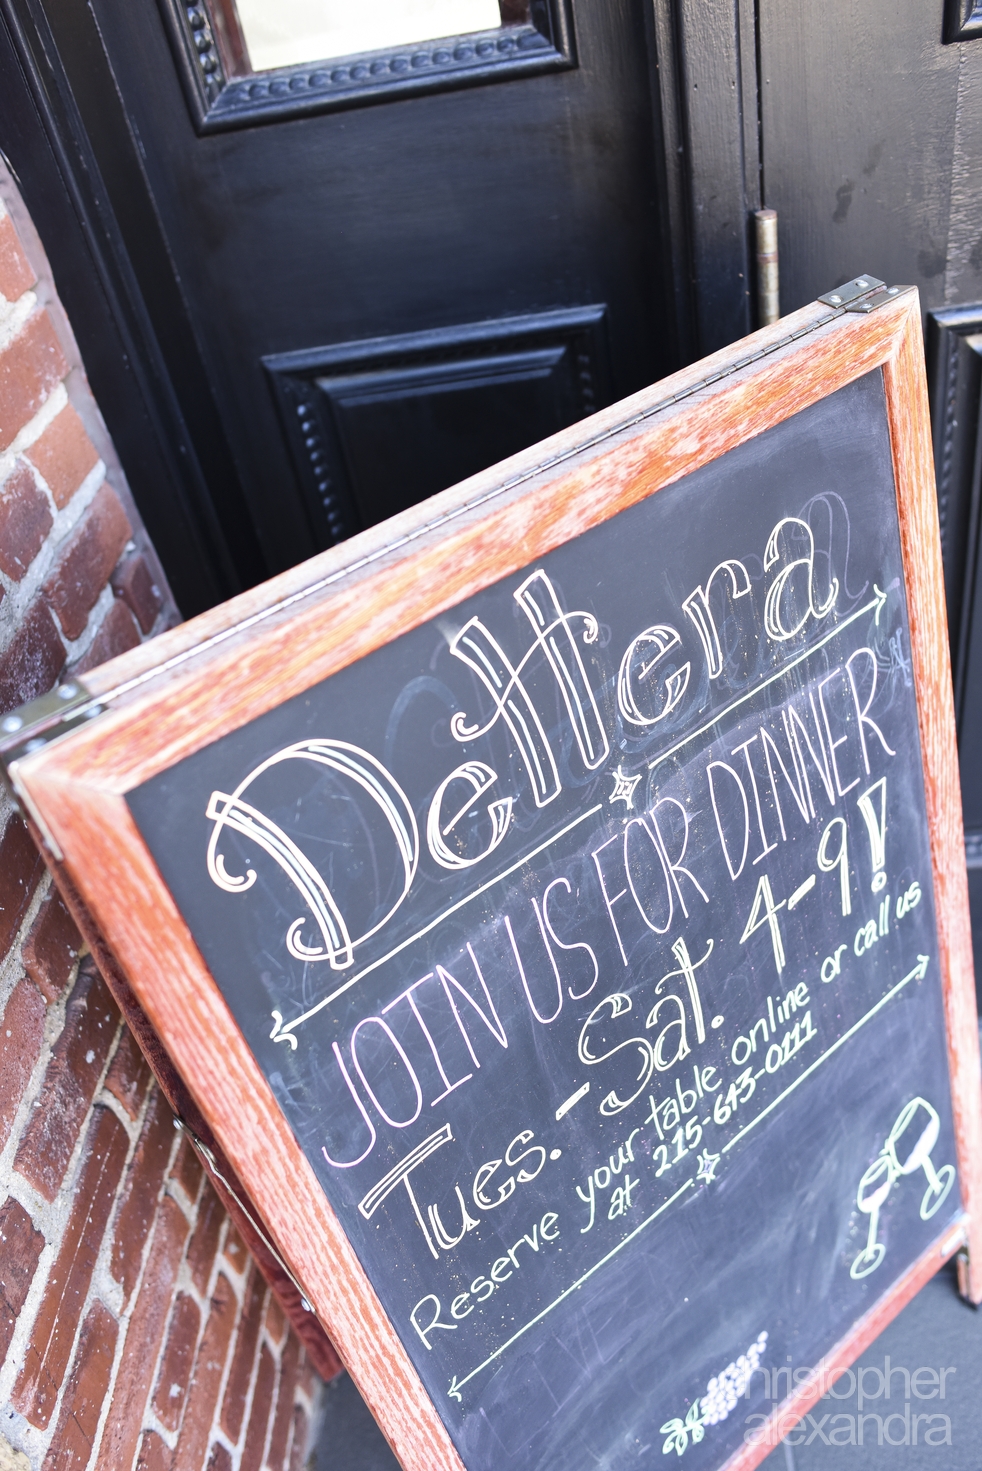 Dettera
JOIN US FOR DINNER
Tues. - Sat. 4-9!
Reserve your table online or call us
at 215-643-0111
christopher
alexandra